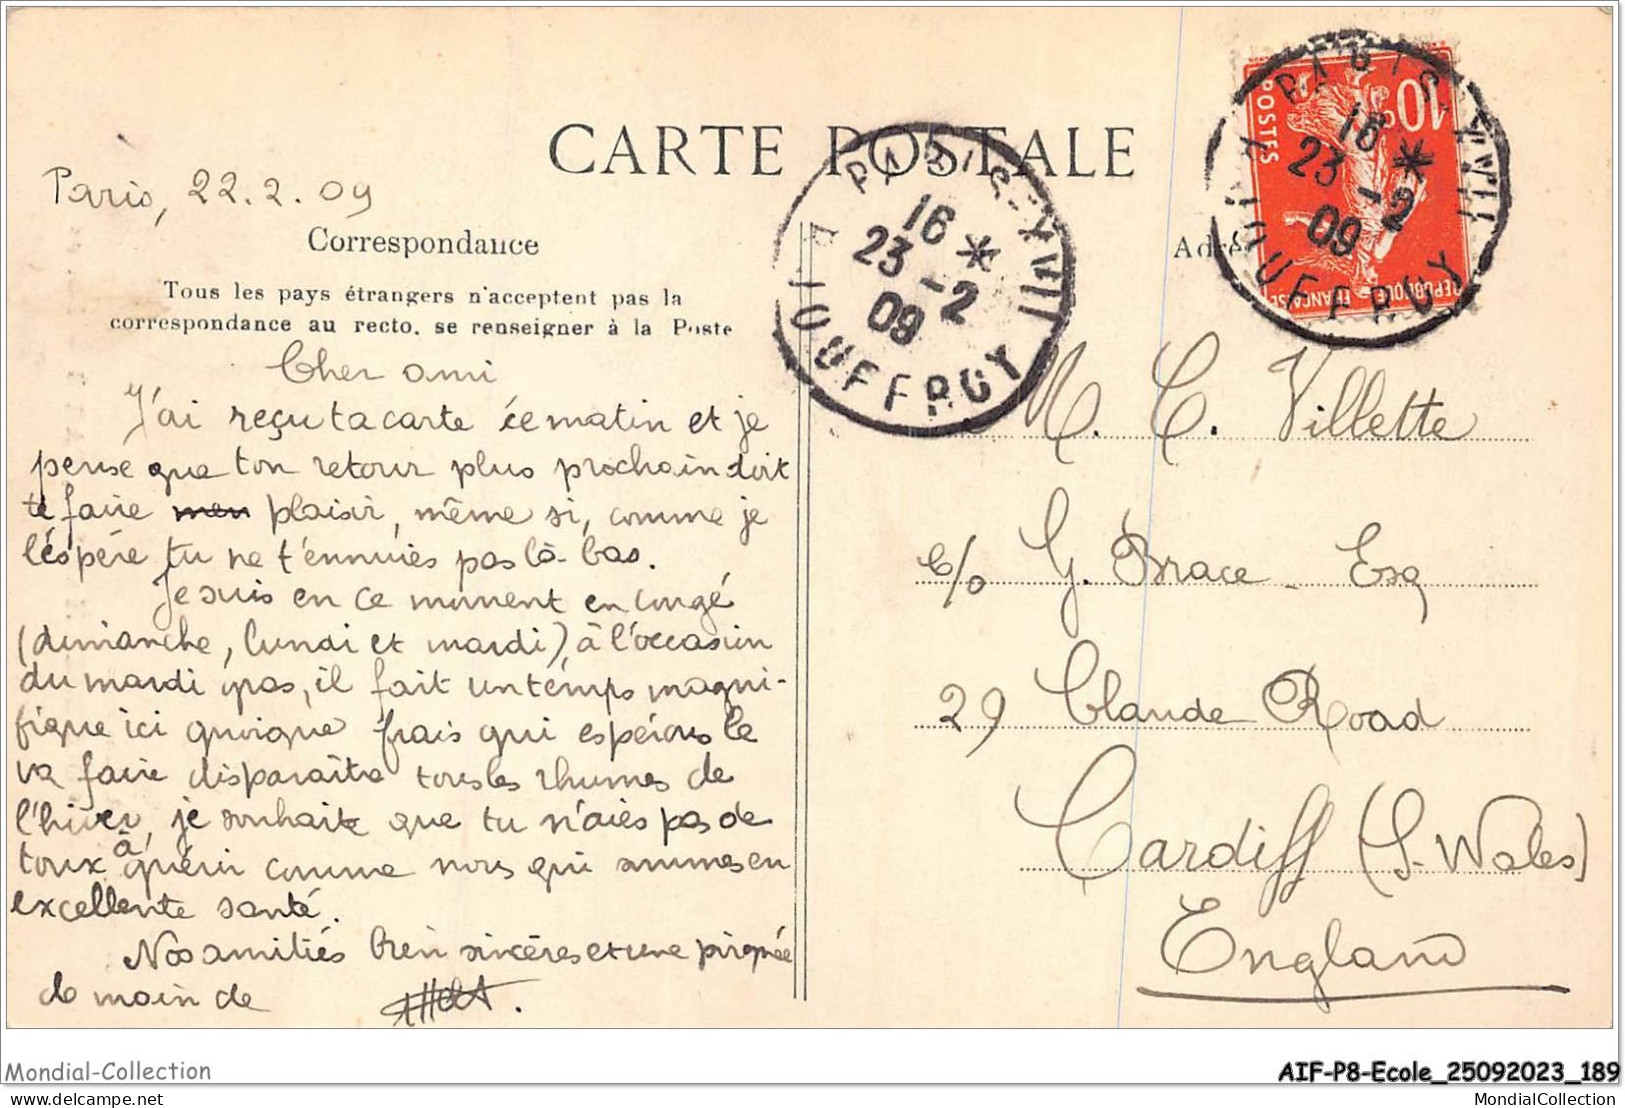 CARTE POSTALE
Paris, 22.2.09
Correspondance
Tous les pays étrangers n'acceptent pas la
correspondance au recto. se renseigner à la Poste
Cher ami
J'ai reçu ta carte ce matin et je
pense que ton retour plus prochain doit
te faire mon plaisir, même si, comme je
l'éspére tu ne t'ennuies pas là-bas.
Je suis en ce moment en congé
(dimanche, lundi et mardi) à l'occasion
du mardi gras, il fait un temps magni-
fique ici quoique frais qui espérons le
va faire disparaître tous les rhumes de
l'hiver, je souhaite que tu n'aies pas de
toux à guérir comme nous qui sommes en
excellente santé.
Nos amitiés bien sincères et une poignée
de main de
PARIS. XVII
16 *
23 -2
09
R. JOUFFROY
10c
POSTES
REPUBLIQUE FRANÇAISE
PARIS. XVII
16 *
23 -2
09
R. JOUFFROY
M. C. Villette
c/o G. Brace - Esq
29 Claude Road
Cardiff (S. Wales)
England
Mondial-Collection
AIF-P8-Ecole_25092023_189
delcampe.net
MondialCollection